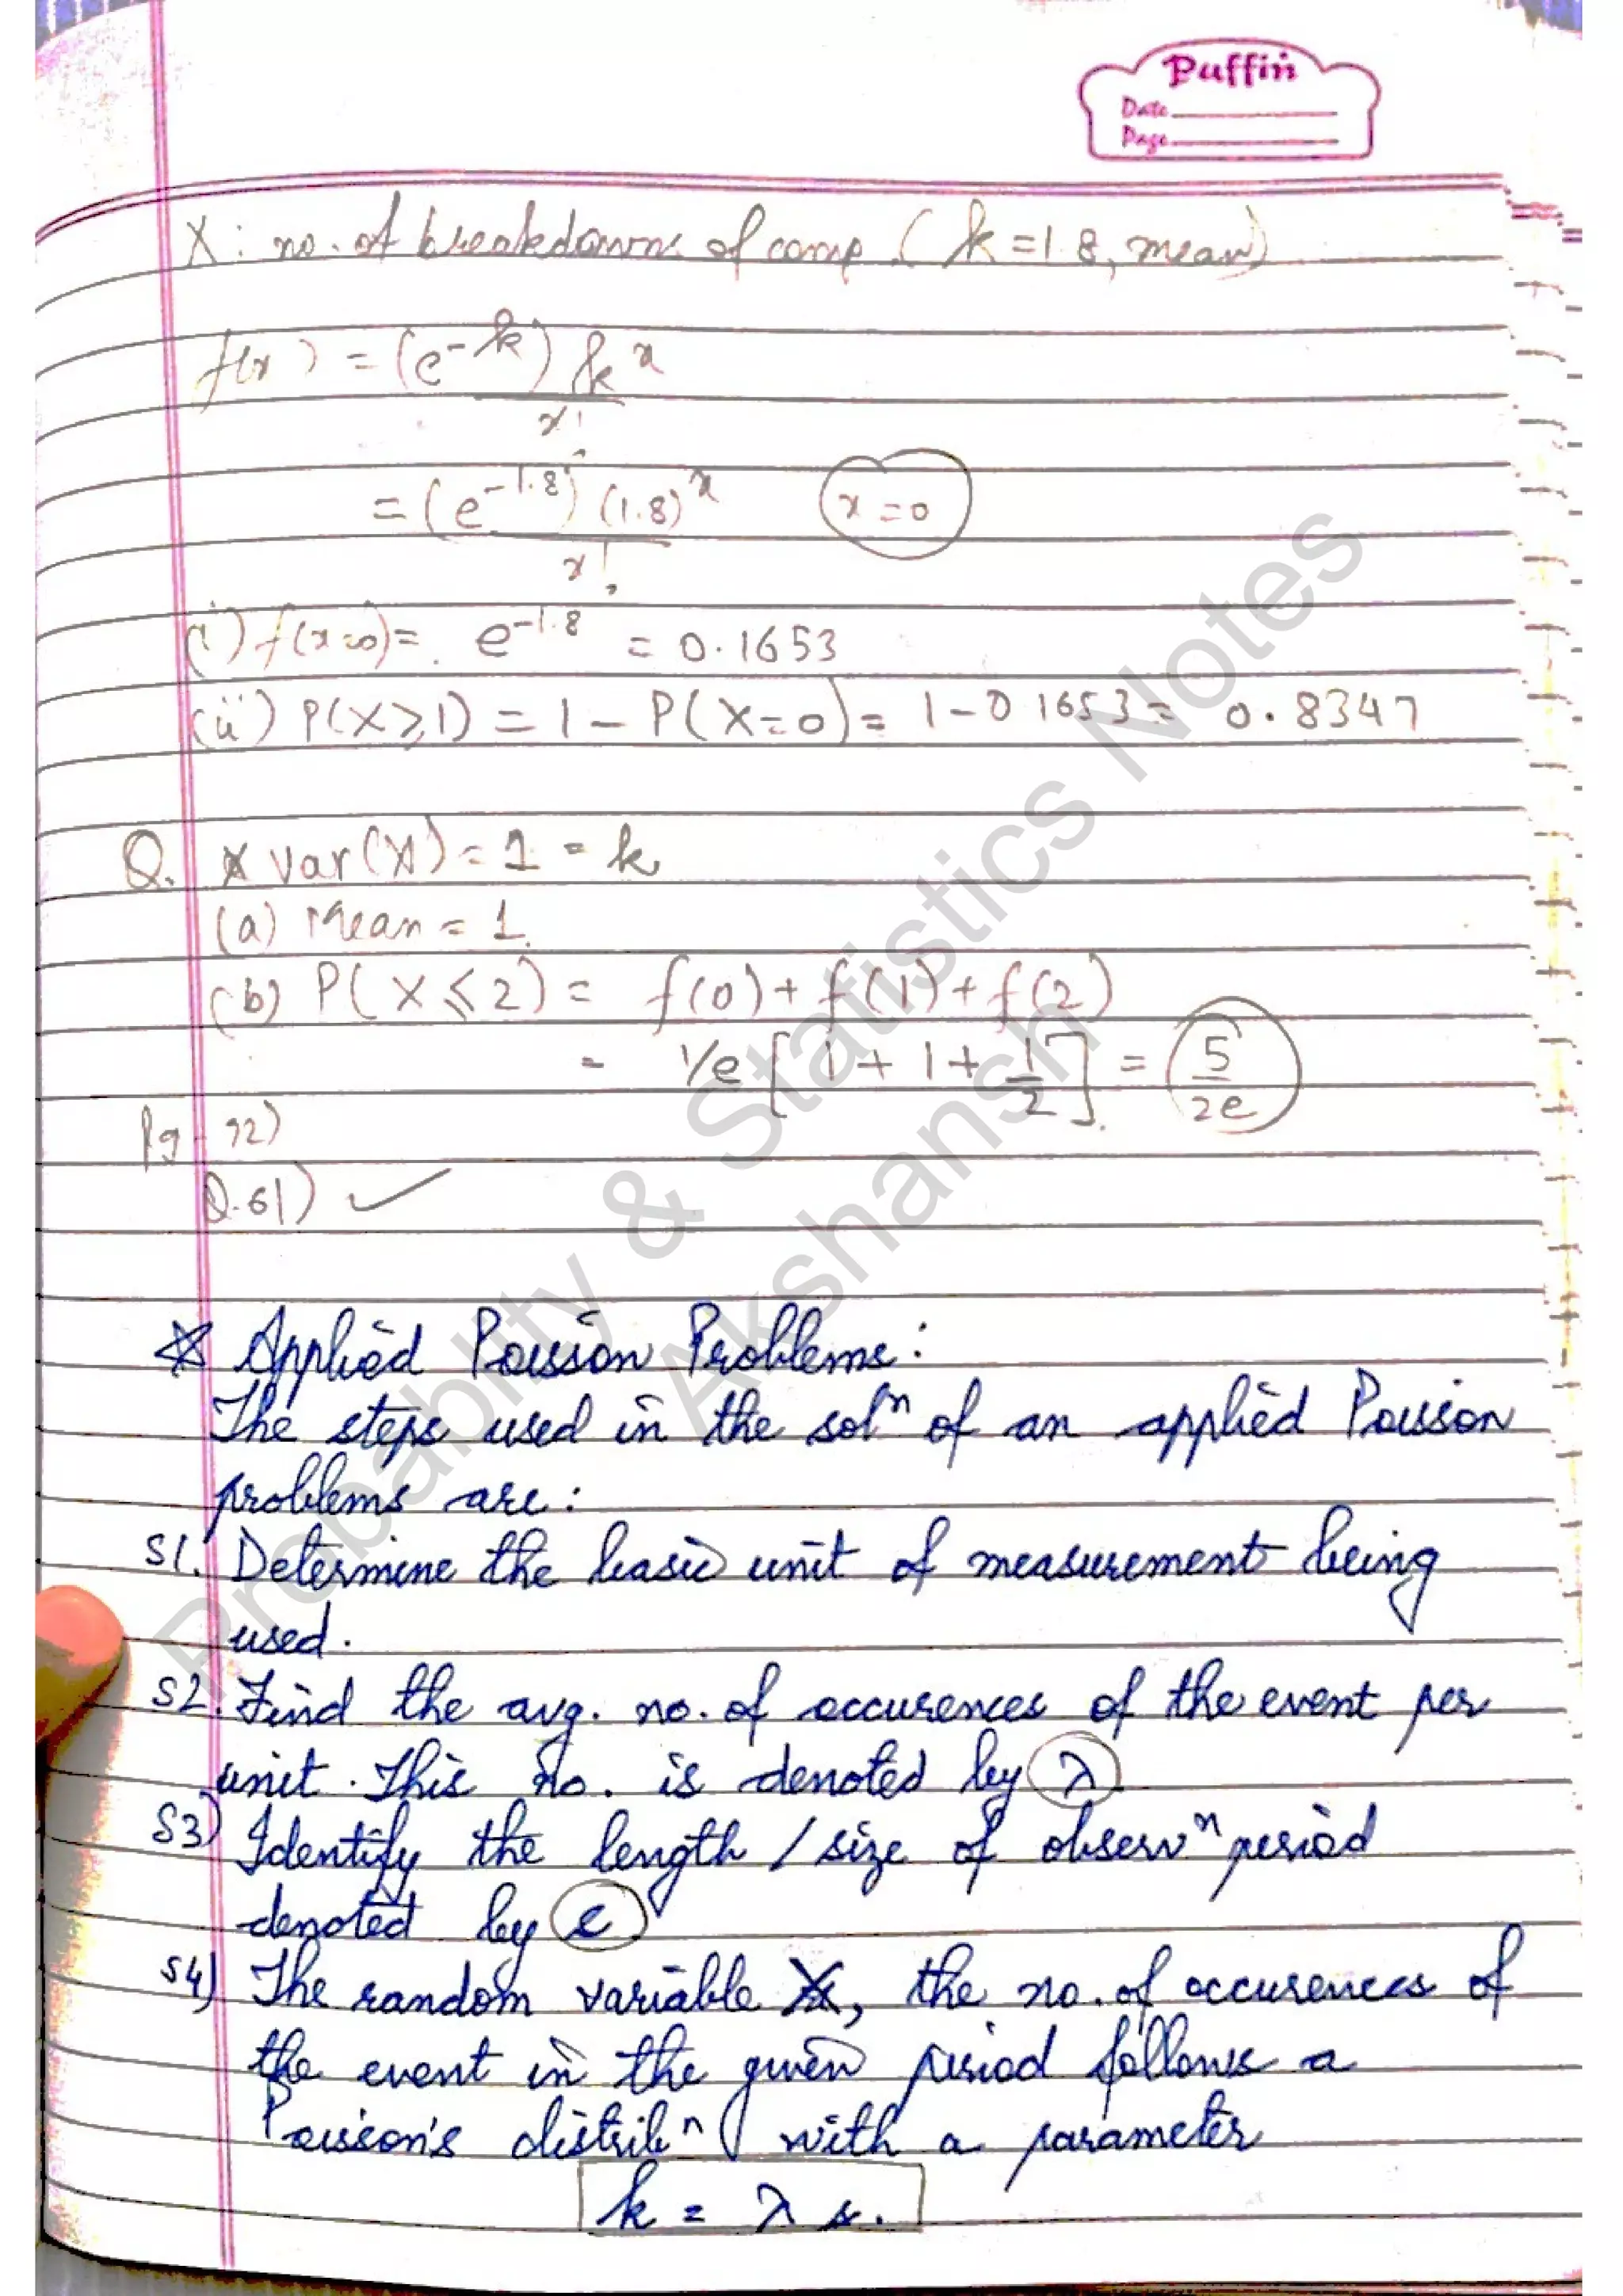 Puffin
Date
Page
X : no. of breakdowns of comp. (k = 1.8, mean)
f(x) = (e^-k) k^x
x!
= (e^-1.8) (1.8)^x x = 0
x!
(i) f(x=0) = e^-1.8 = 0.1653
(ii) P(X ≥ 1) = 1 - P(X = 0) = 1 - 0.1653 = 0.8347
Q. Var(X) = 1 = k
(a) Mean = 1.
(b) P(X ≤ 2) = f(0) + f(1) + f(2)
= 1/e [1 + 1 + 1/2] = 5/2e
Pg - 92)
Q.61) ✓
☆ Applied Poisson Problems :
The steps used in the sol^n of an applied Poisson
problems are :
S1. Determine the basic unit of measurement being
used.
S2. Find the avg. no. of occurences of the event per
unit. This no. is denoted by λ
S3) Identify the length / size of observ^n period
denoted by s
S4) The random variable X, the no. of occurences of
the event in the given period follows a
Poisson's distrib^n with a parameter
k = λ s.
Probability & Statistics Notes
Akshansh